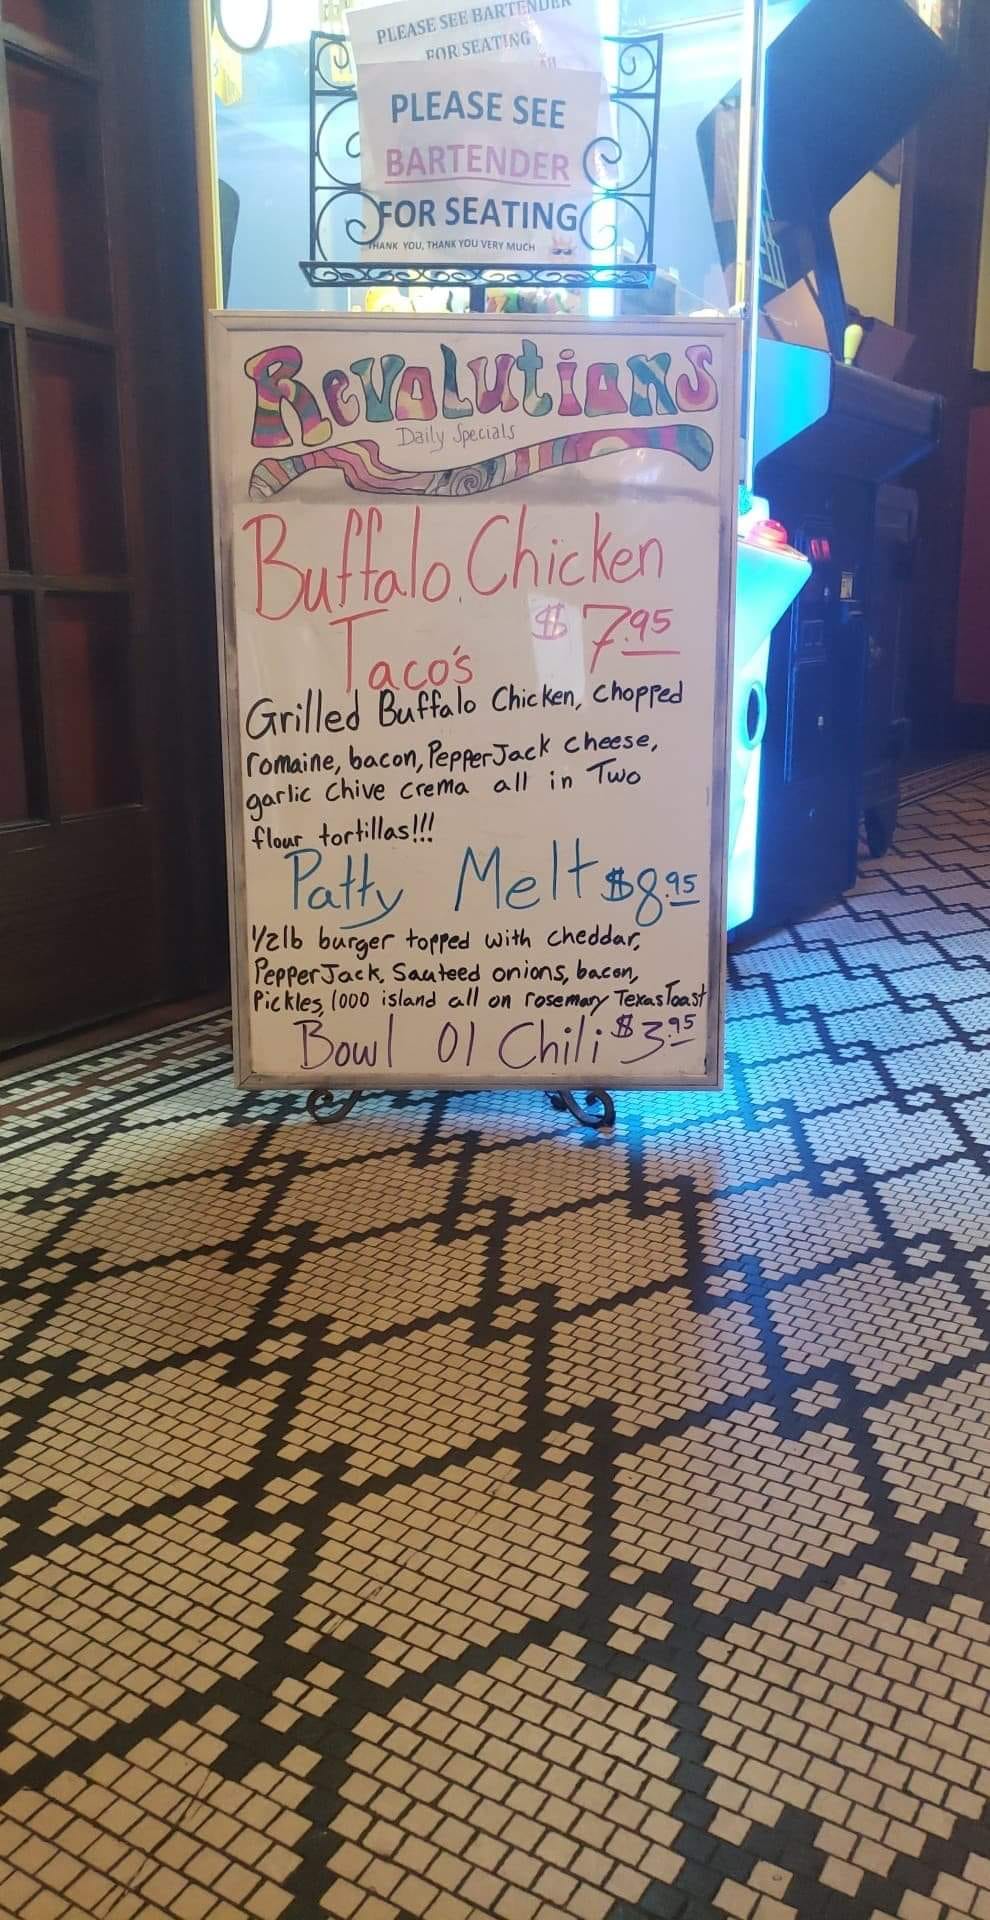 PLEASE SEE BARTENDER
FOR SEATING
PLEASE SEE
BARTENDER
FOR SEATING
THANK YOU, THANK YOU VERY MUCH
Revolutions
Daily Specials
Buffalo Chicken
Taco's $7.95
Grilled Buffalo Chicken, chopped
romaine, bacon, PepperJack cheese,
garlic chive crema all in Two
flour tortillas!!!
Patty Melt $8.95
1/2lb burger topped with cheddar,
PepperJack, Sauteed onions, bacon,
Pickles, 1000 island all on rosemary Texas Toast
Bowl Ol Chili $3.95